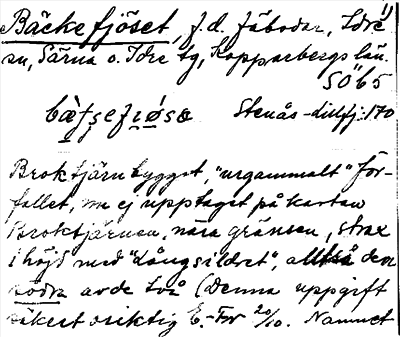 Bäckefjöset, f.d. fäbodar, Idre 1)
sn, Särna o. Idre tg, Kopparbergs län.
SÖ65
Stenås-dillfj:170
Broktjärn bygget, "urgammalt" för-
fallet, nu ej upptaget på kartan
Broktjärnen, nära gränsen, strax
i höjd med "Långsildret", alltså den
södra av de två (Denna uppgift
säkert oriktig E.-Fbr 20/10. Namnet